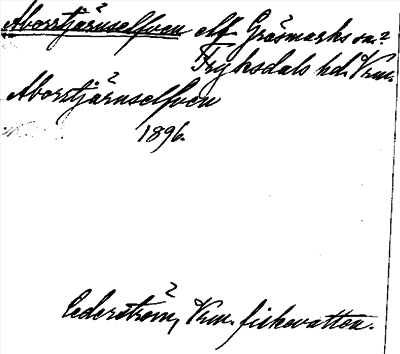 Aborrtjärnselfven elf Gräsmarks sn?
Fryksdals hd. Vrm.
Aborrtjärnselfven
1896.
Cederström, Vrm. fiskevatten.